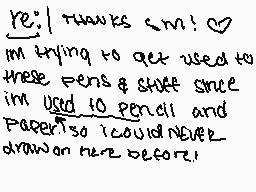 re: | THANKS sm! ♡
im trying to get used to
these pens & stuff since
im used to pencil and
paper! so i could NEVER
draw on here before!